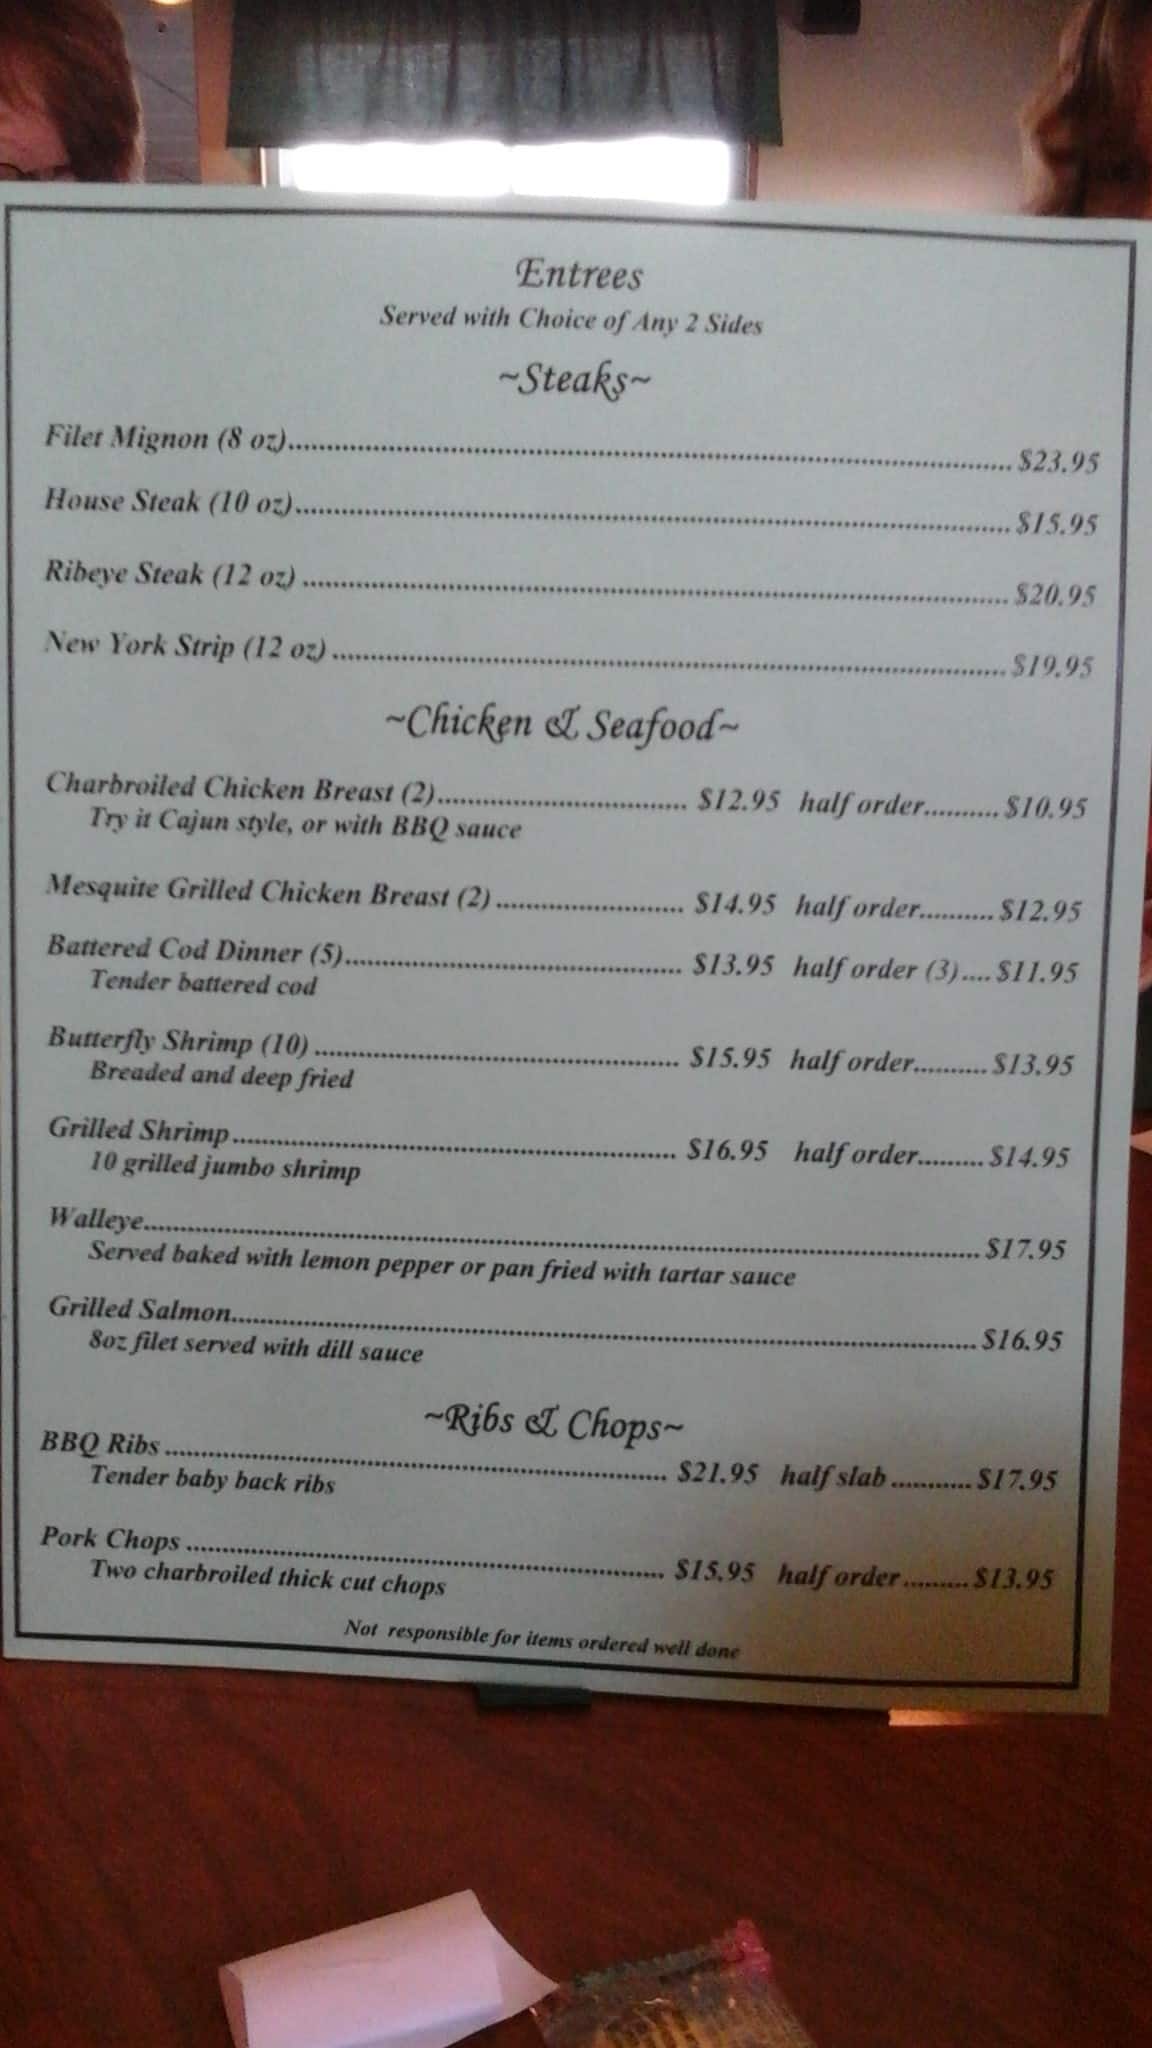 Entrees
Served with Choice of Any 2 Sides
~Steaks~
Filet Mignon (8 oz)........................................ $23.95
House Steak (10 oz)........................................ $15.95
Ribeye Steak (12 oz) ........................................ $20.95
New York Strip (12 oz) ........................................ $19.95
~Chicken & Seafood~
Charbroiled Chicken Breast (2)................................ $12.95 half order.......... $10.95
Try it Cajun style, or with BBQ sauce
Mesquite Grilled Chicken Breast (2) ........................ $14.95 half order.......... $12.95
Battered Cod Dinner (5)........................................ $13.95 half order (3) .... $11.95
Tender battered cod
Butterfly Shrimp (10) ........................................ $15.95 half order.......... $13.95
Breaded and deep fried
Grilled Shrimp........................................ $16.95 half order......... $14.95
10 grilled jumbo shrimp
Walleye........................................ $17.95
Served baked with lemon pepper or pan fried with tartar sauce
Grilled Salmon........................................ $16.95
8oz filet served with dill sauce
~Ribs & Chops~
BBQ Ribs ........................................ $21.95 half slab ........... $17.95
Tender baby back ribs
Pork Chops ........................................ $15.95 half order ......... $13.95
Two charbroiled thick cut chops
Not responsible for items ordered well done